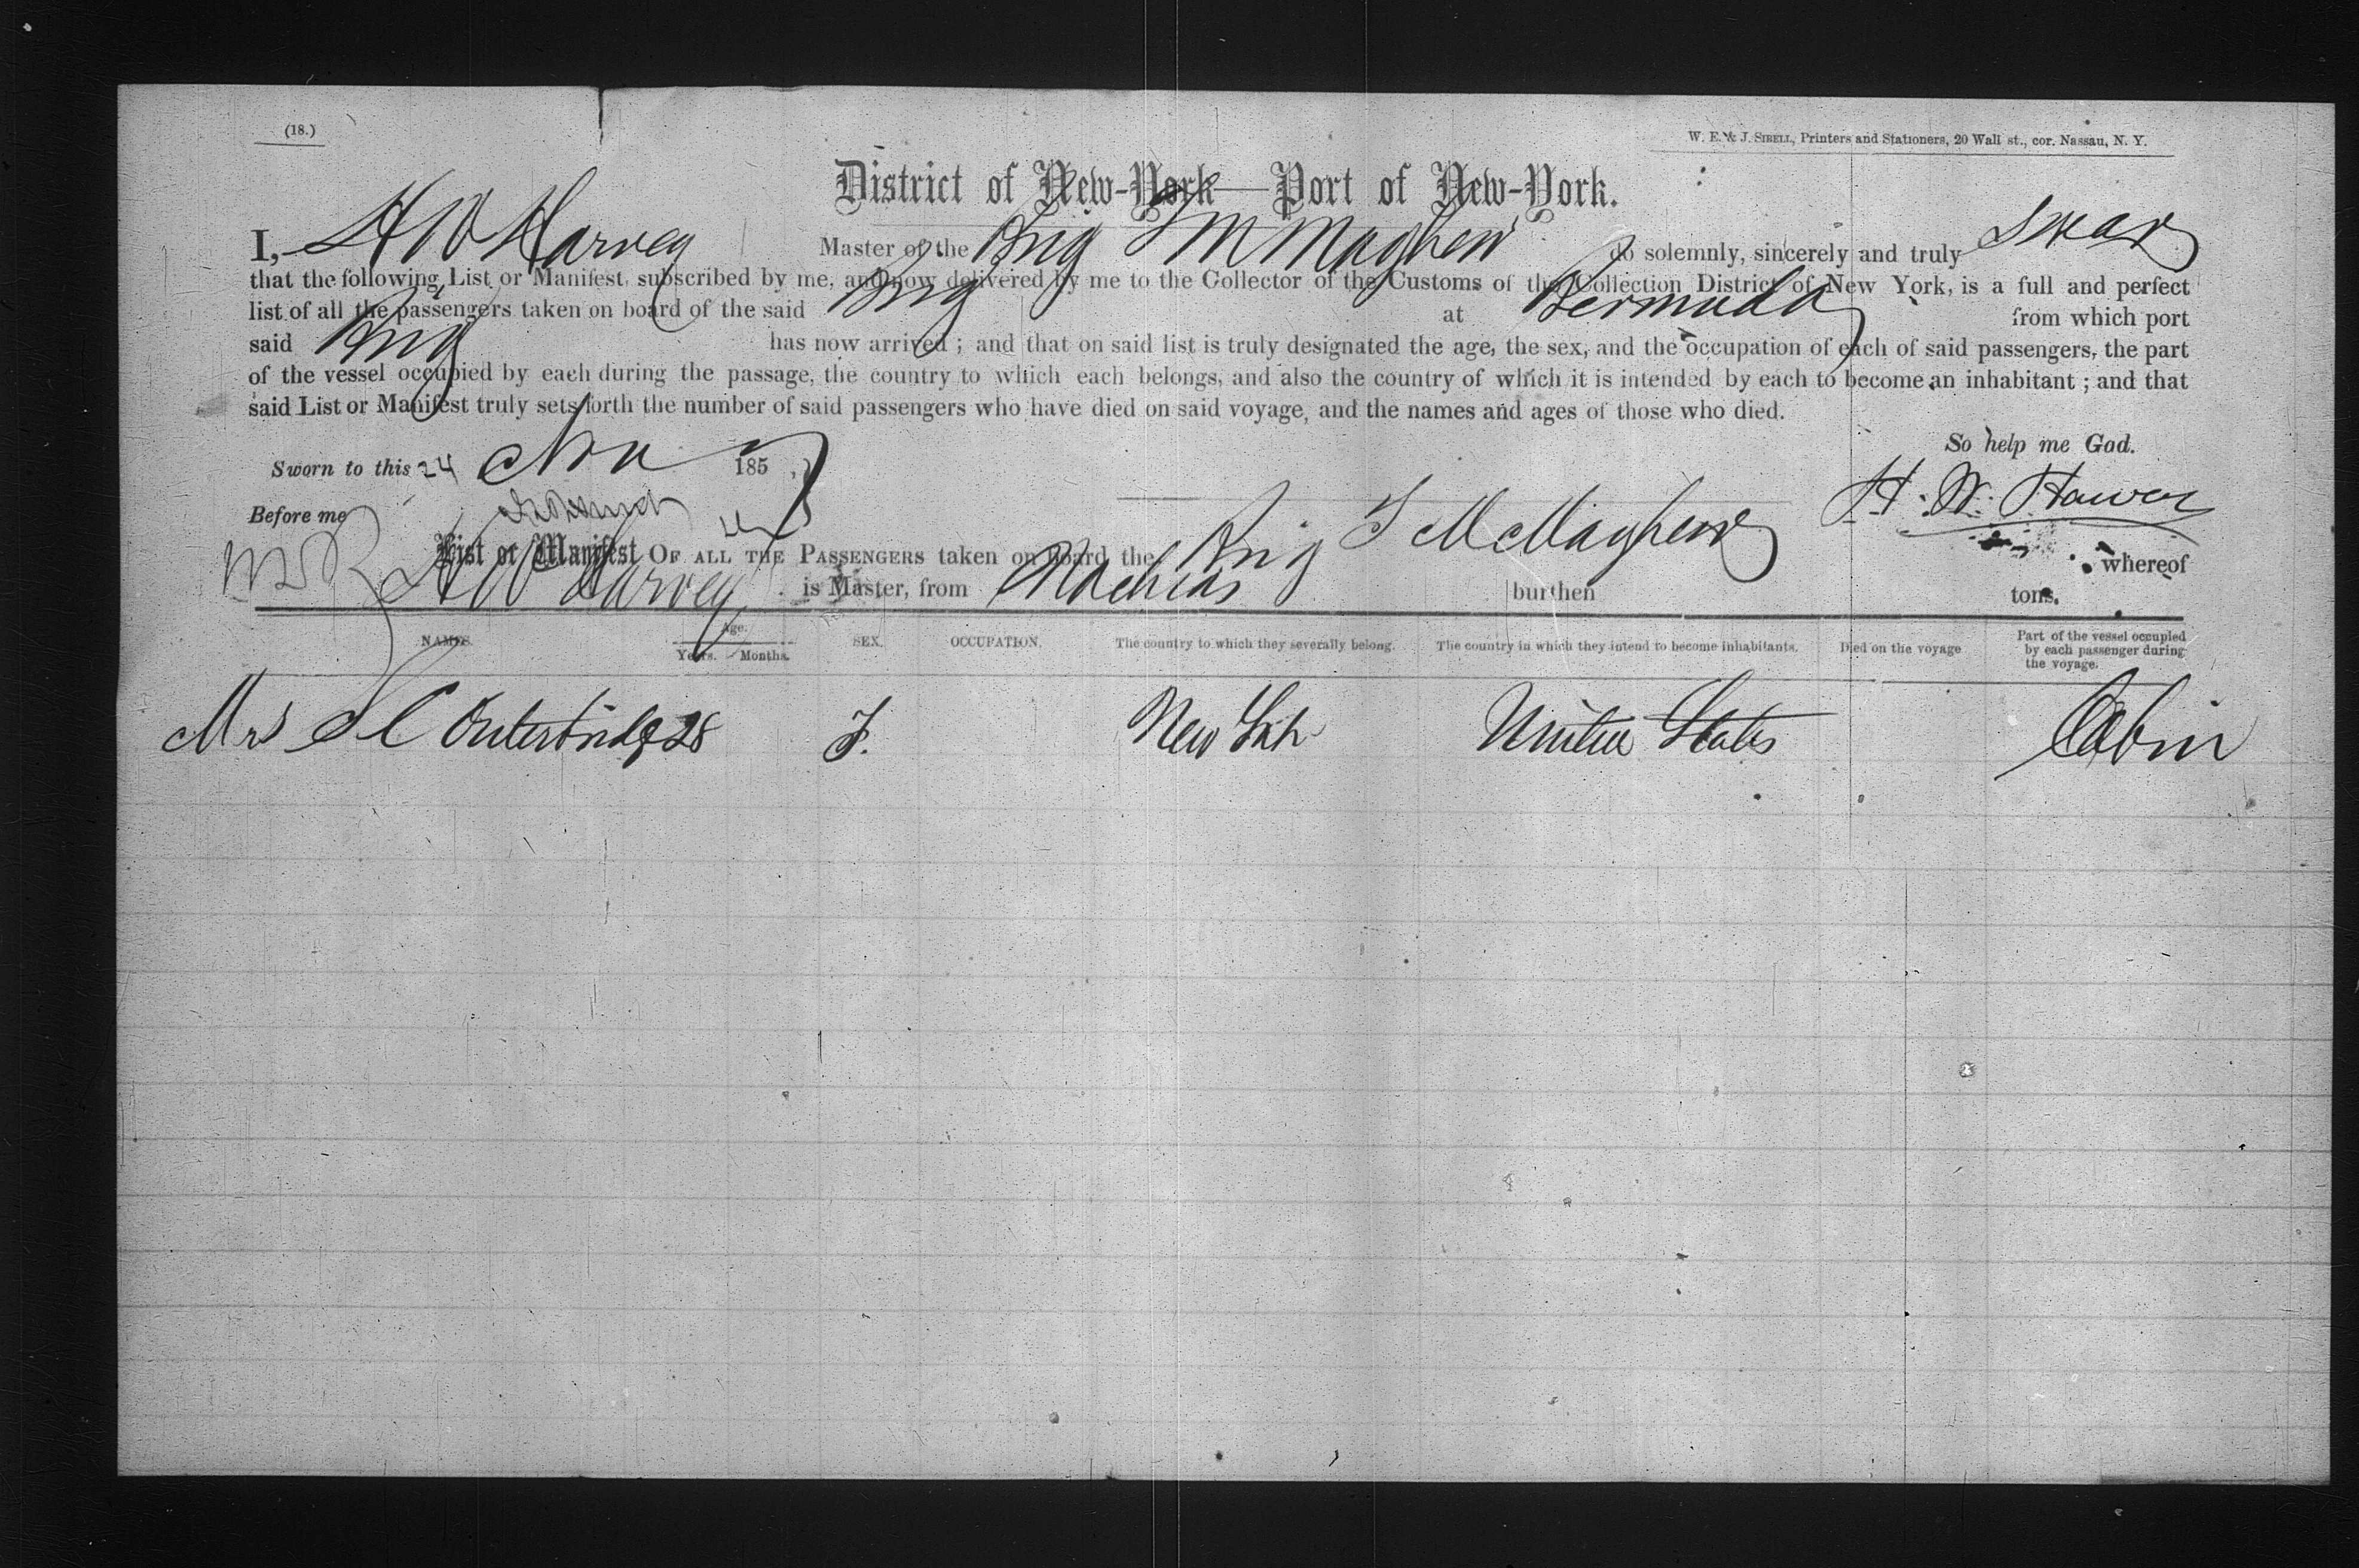 (18.)
W. E. & J. SIBELL, Printers and Stationers, 20 Wall st., cor. Nassau, N. Y.
District of New-York—Port of New-York.
I, H W Harvey Master of the Brig T M Mayhew do solemnly, sincerely and truly swear
that the following List or Manifest, subscribed by me, and now delivered by me to the Collector of the Customs of the Collection District of New York, is a full and perfect
list of all the passengers taken on board of the said Brig at Bermuda from which port
said Brig has now arrived ; and that on said list is truly designated the age, the sex, and the occupation of each of said passengers, the part
of the vessel occupied by each during the passage, the country to which each belongs, and also the country of which it is intended by each to become an inhabitant ; and that
said List or Manifest truly sets forth the number of said passengers who have died on said voyage, and the names and ages of those who died.
So help me God.
Sworn to this 24 Nov 185
H. W. Harvey
Before me
List or Manifest OF ALL THE PASSENGERS taken on board the Brig T M Mayhew whereof
H W Harvey is Master, from Machias burthen tons.
NAMES. Age. Years. Months. SEX. OCCUPATION. The country to which they severally belong. The country in which they intend to become inhabitants. Died on the voyage Part of the vessel occupied by each passenger during the voyage.
Mrs S C Outerbridge 28 F. New York United States Cabin